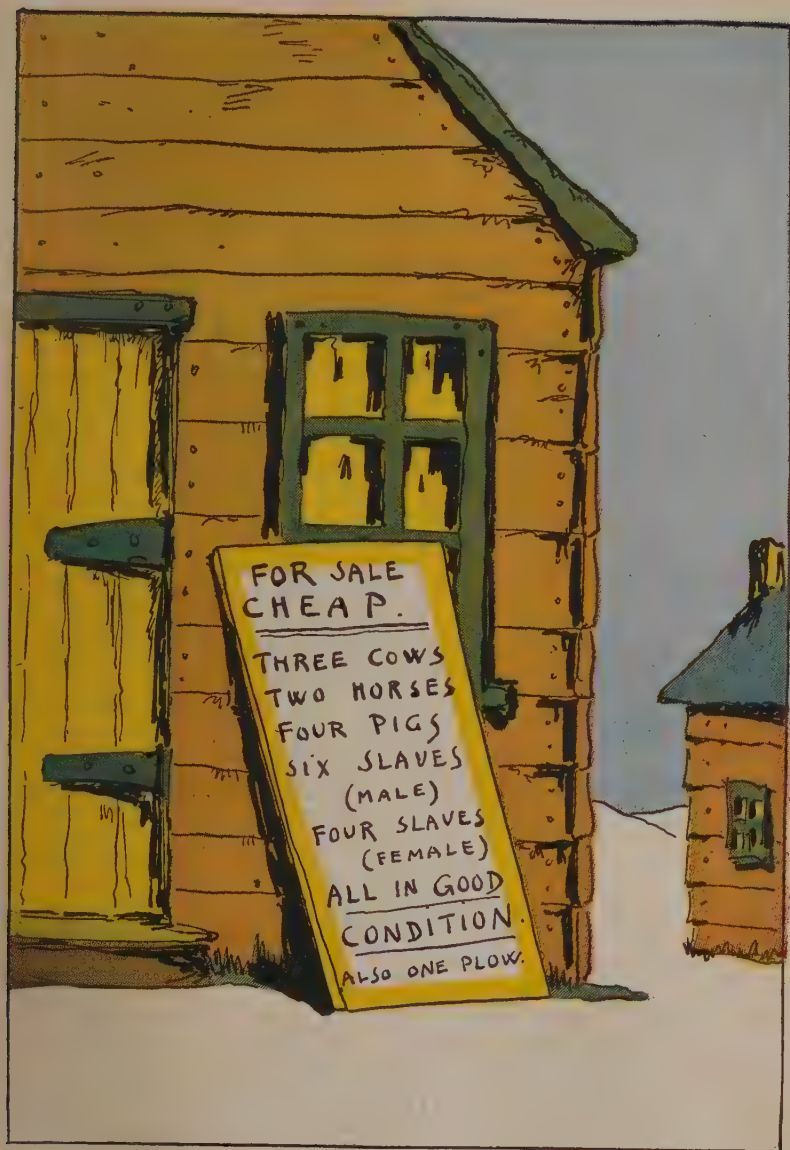 FOR SALE
CHEAP.
THREE COWS
TWO HORSES
FOUR PIGS
SIX SLAVES
(MALE)
FOUR SLAVES
(FEMALE)
ALL IN GOOD
CONDITION.
ALSO ONE PLOW.